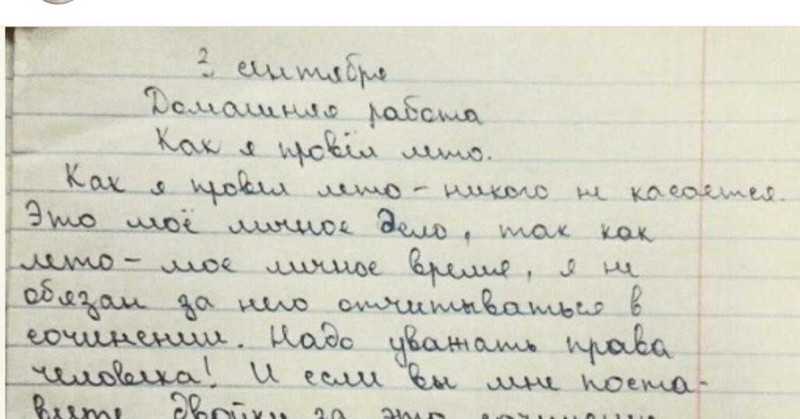 2 сентября
Домашняя работа
Как я провёл лето.
Как я провел лето – никого не касается.
Это моё личное дело, так как
лето – мое личное время, я не
обязан за него отчитываться в
сочинении. Надо уважать права
человека! И если вы мне поста-
вите двойку за это сочинение